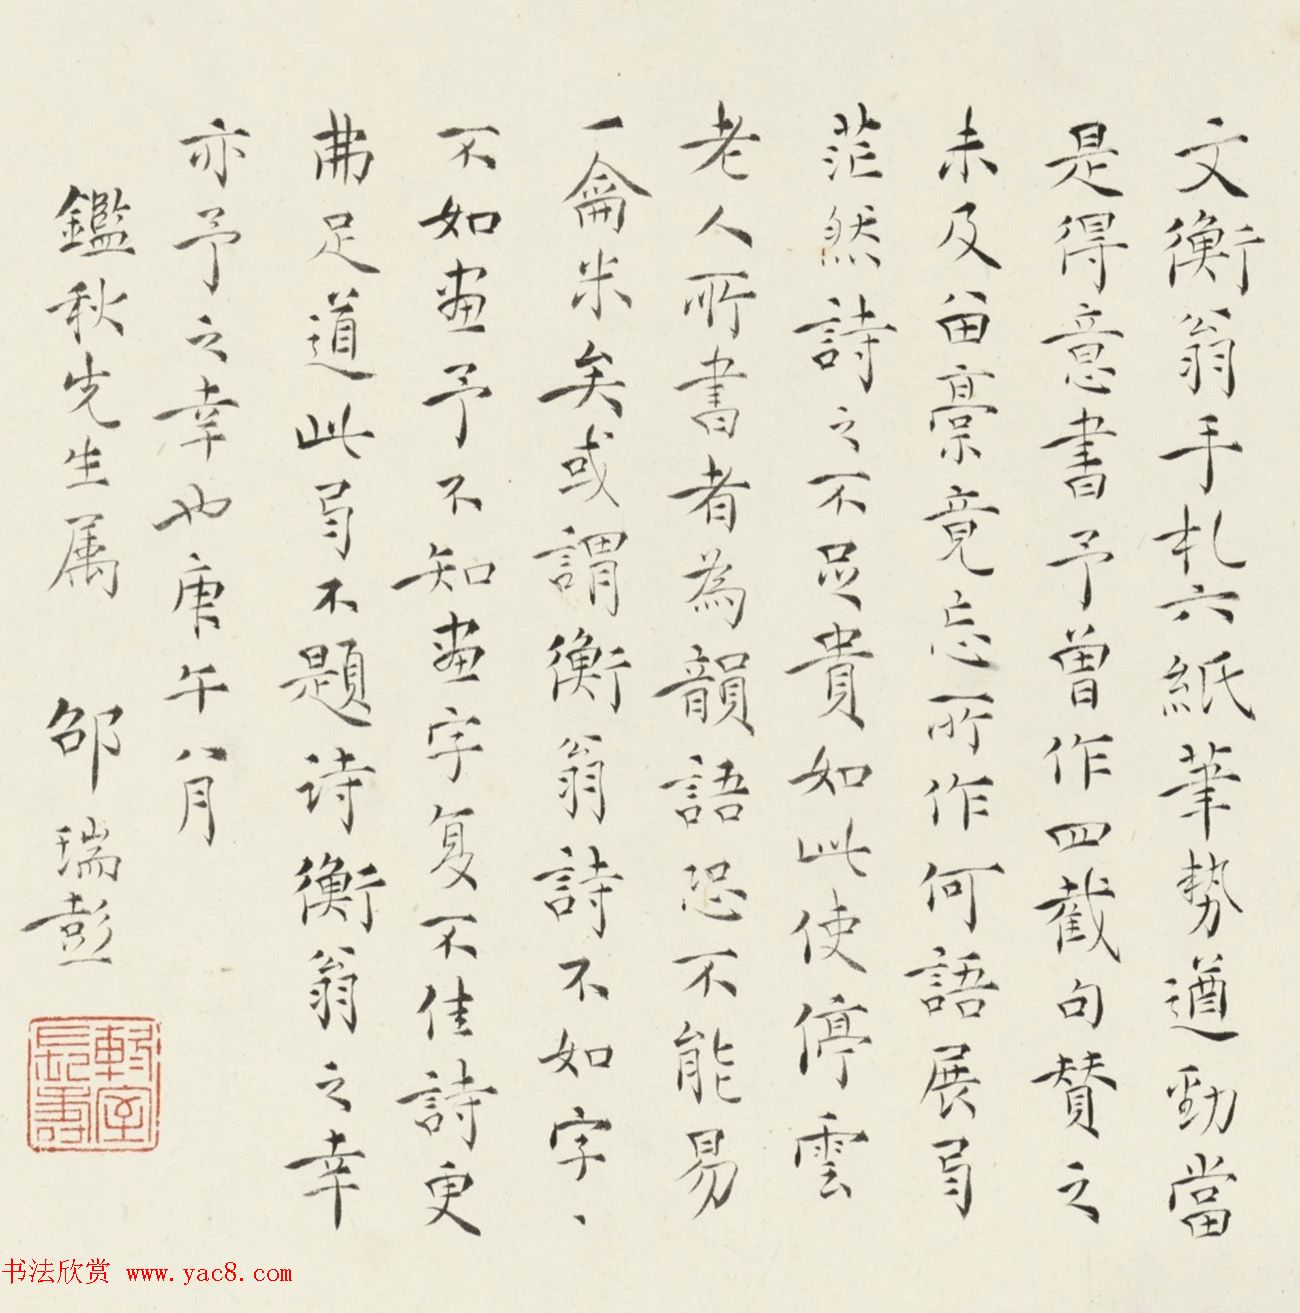 文衡翁手札六紙筆勢遒勁當
是得意書予曾作四截句贊之
未及留稾竟忘所作何語展㢧
茫然詩之不足貴如此使停雲
老人所書者為韻語恐不能易
一龠米矣或謂衡翁詩不如字、
不如画予不知画字复不佳詩更
弗足道此㢧不題诗衡翁之幸
亦予之幸也庚午八月
鑑秋先生属 邵瑞彭
書法欣赏 www.yac8.com